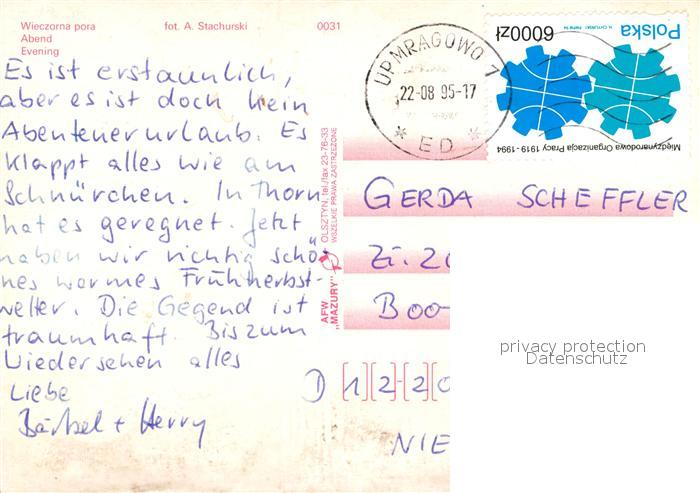 Wieczorna pora
Abend
Evening
fot. A. Stachurski
0031
Es ist erstaunlich,
aber es ist doch kein
Abenteuerurlaub. Es
klappt alles wie am
Schnürchen. In Thorn
hat es geregnet. Jetzt
haben wir richtig schö-
nes warmes Frühherbst-
wetter. Die Gegend ist
traumhaft. Bis zum
Wiedersehen alles
Liebe
Bärbel + Herry
AFW "MAZURY"
OLSZTYN, tel./fax 23-76-33
WSZELKIE PRAWA ZASTRZEŻONE
UP MRĄGOWO 1
22-08 95-17
* ED *
Polska
6000zł
Międzynarodowa Organizacja Pracy 1919-1994
GERDA SCHEFFLER
Zi. 20
Boo-
D 1 2-2 0
NIE
privacy protection
Datenschutz